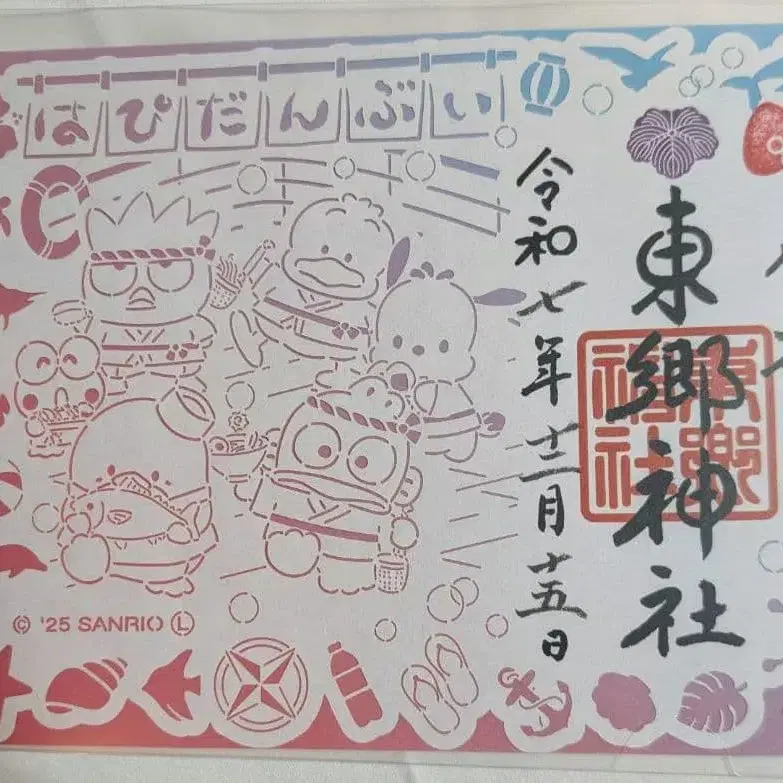 はぴだんぶい
東郷神社
令和七年十二月十五日
© '25 SANRIO Ⓛ